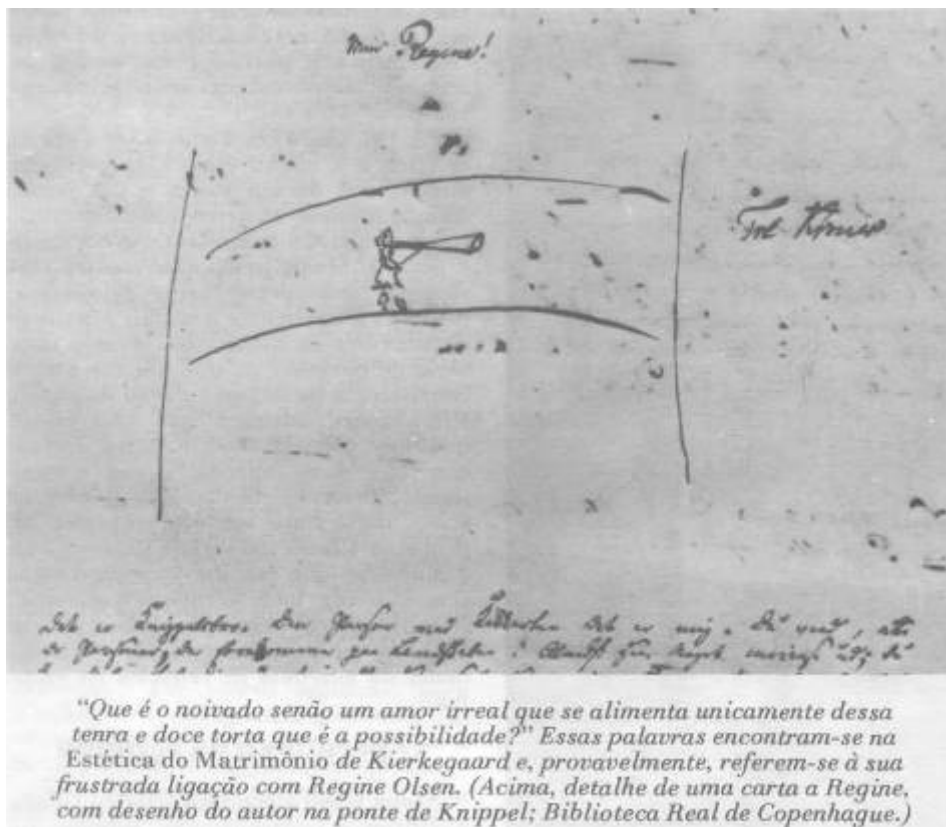 Min Regine!
Det er Knippelsbro. Den Person med Kikkerten det er mig. Du veed, at
de Personer, der forekomme paa
"Que é o noivado senão um amor irreal que se alimenta unicamente dessa
tenra e doce torta que é a possibilidade?" Essas palavras encontram-se na
Estética do Matrimônio de Kierkegaard e, provavelmente, referem-se à sua
frustrada ligação com Regine Olsen. (Acima, detalhe de uma carta a Regine,
com desenho do autor na ponte de Knippel; Biblioteca Real de Copenhague.)